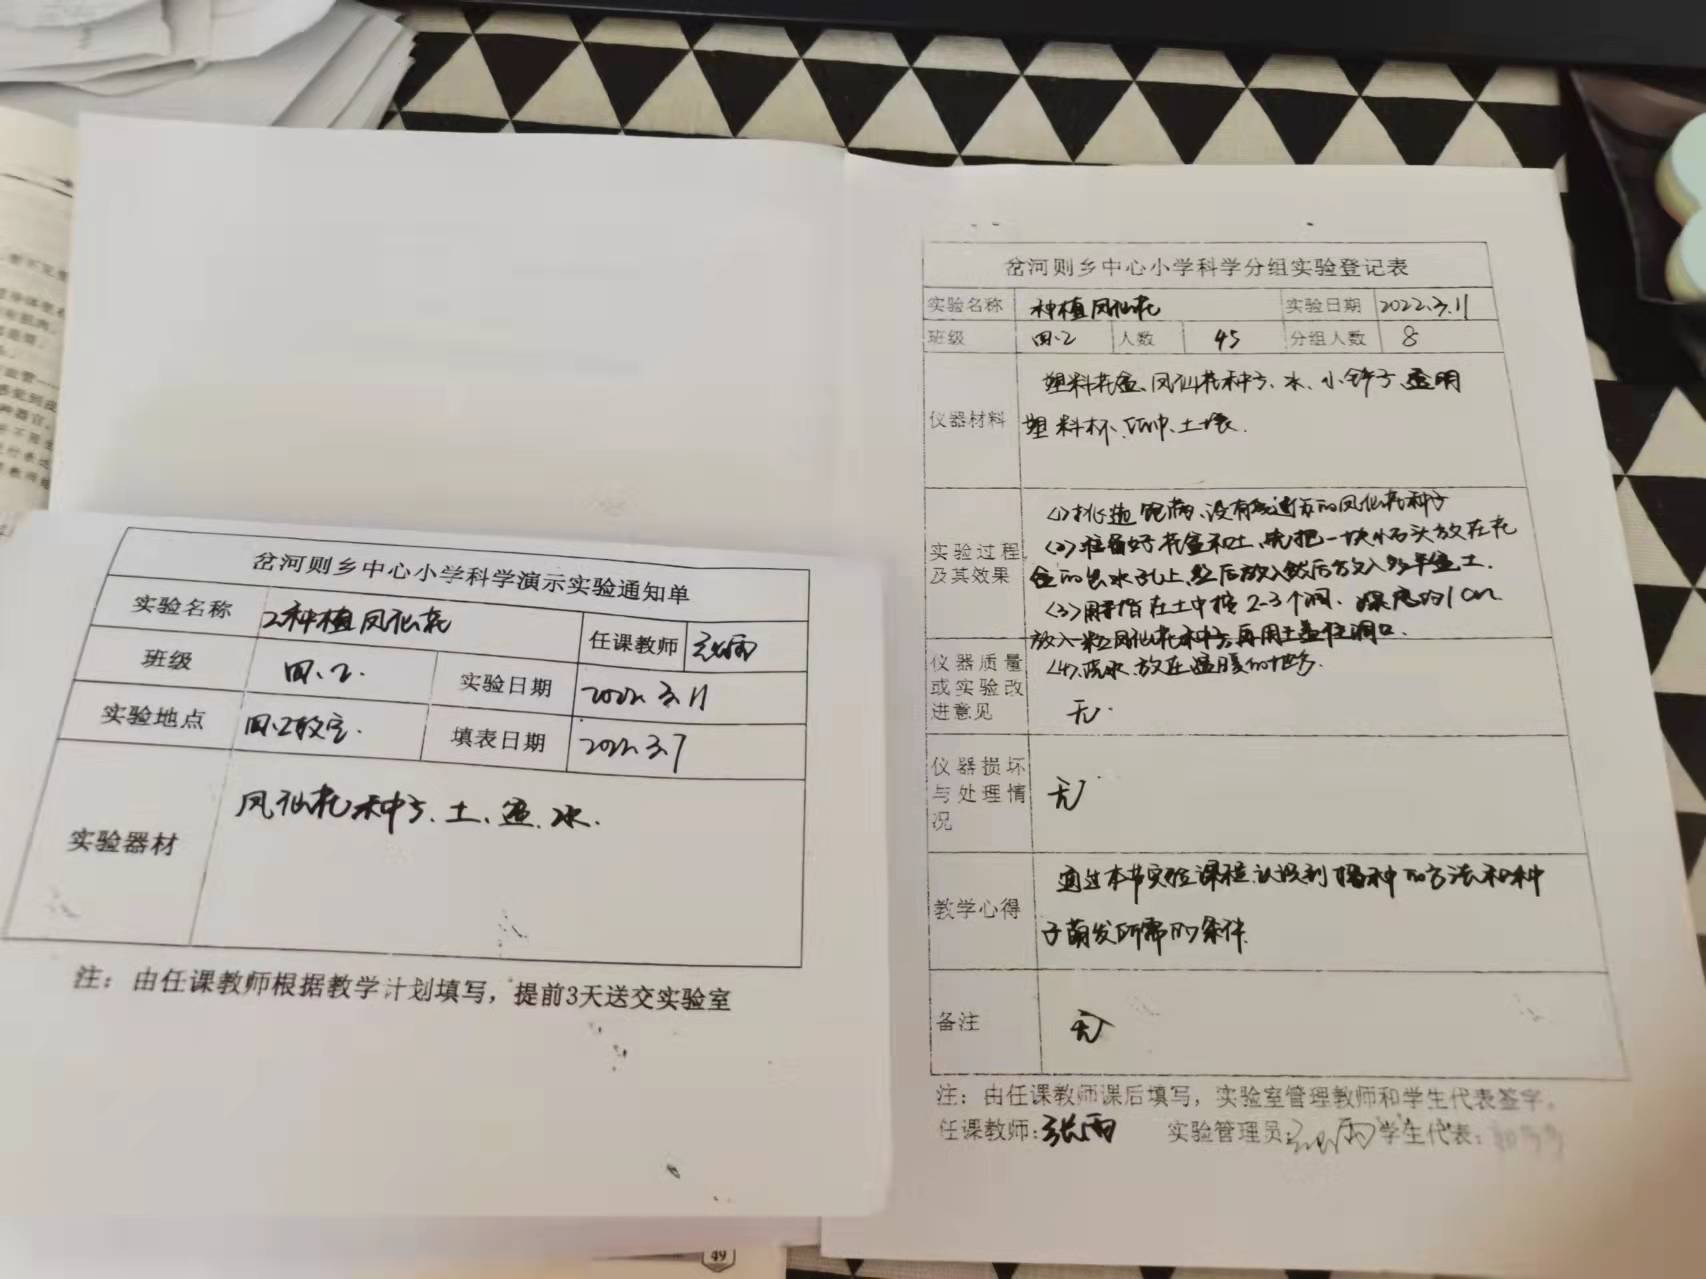 岔河则乡中心小学科学演示实验通知单
实验名称 2种植凤仙花 任课教师 张雨
班级 四.2. 实验日期 2022.3.11
实验地点 四.2教室. 填表日期 2022.3.7
实验器材 凤仙花种子、土、盆、水.
注：由任课教师根据教学计划填写，提前3天送交实验室
49
岔河则乡中心小学科学分组实验登记表
实验名称 种植凤仙花 实验日期 2022.3.11
班级 四.2 人数 45 分组人数 8
仪器材料
塑料花盆、凤仙花种子、水、小铲子、透明
塑料杯、纸巾、土壤.
实验过程
及其效果
(1)挑选饱满、没有的凤仙花种子
(2)准备好花盆和土、先把一块小石头放在花
盆的出水孔上,然后放入然后放入多半盆土.
(3)用手指在土中按2-3个洞、深度约1cm
放入一粒凤仙花种子,再用土盖住洞口.
(4).浇水.放在温暖的地方.
仪器质量
或实验改
进意见
无.
仪器损坏
与处理情
况
无
教学心得
通过本节实验课程,认识到播种的方法和种
子萌发所需的条件.
备注 无
注：由任课教师课后填写，实验室管理教师和学生代表签字。
任课教师:张雨 实验管理员:张雨 学生代表: